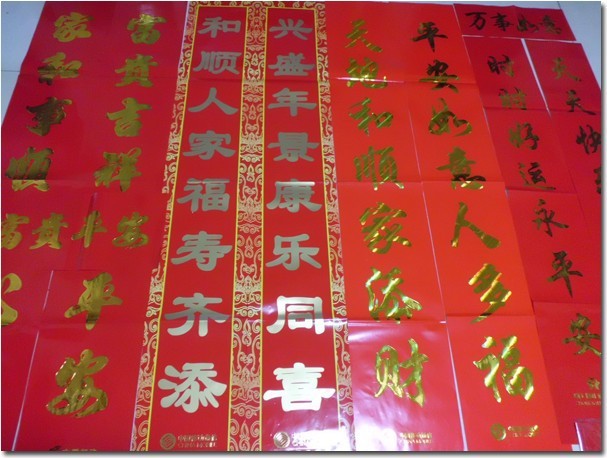 万事如意
天天快
时时好运永平安
平安如意人多福
天地和順家添财
兴盛年景康乐同喜
和顺人家福寿齐添
富貴吉祥
家和事順
富貴平安
平安